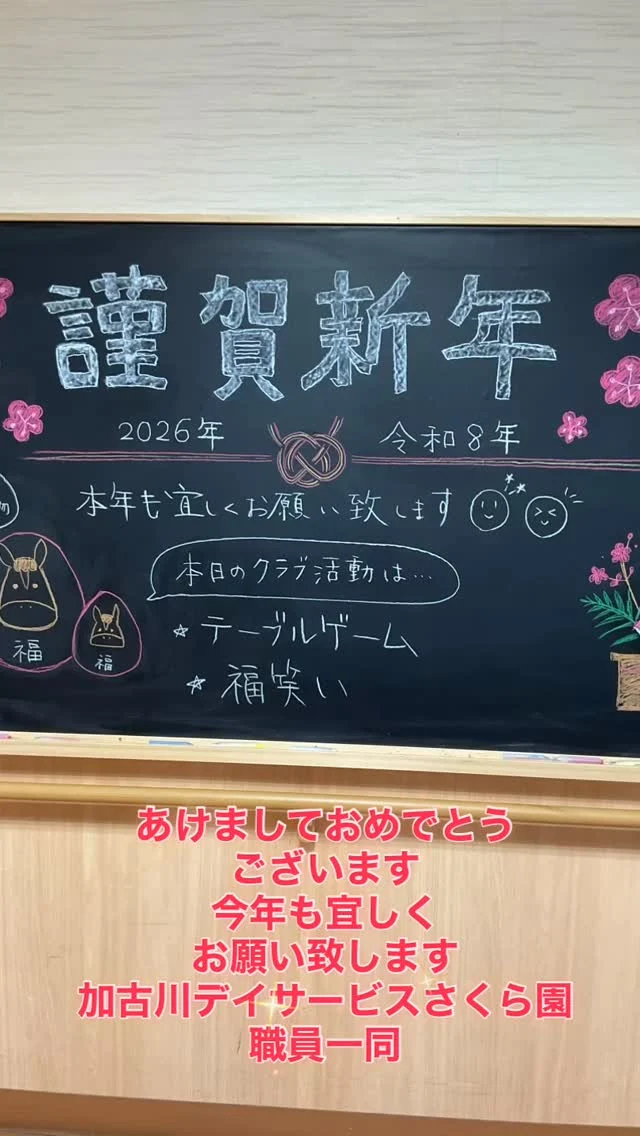 謹賀新年
2026年 令和8年
本年も宜しくお願い致します
本日のクラブ活動は…
テーブルゲーム
福笑い
福
福
あけましておめでとう
ございます
今年も宜しく
お願い致します
加古川デイサービスさくら園
職員一同